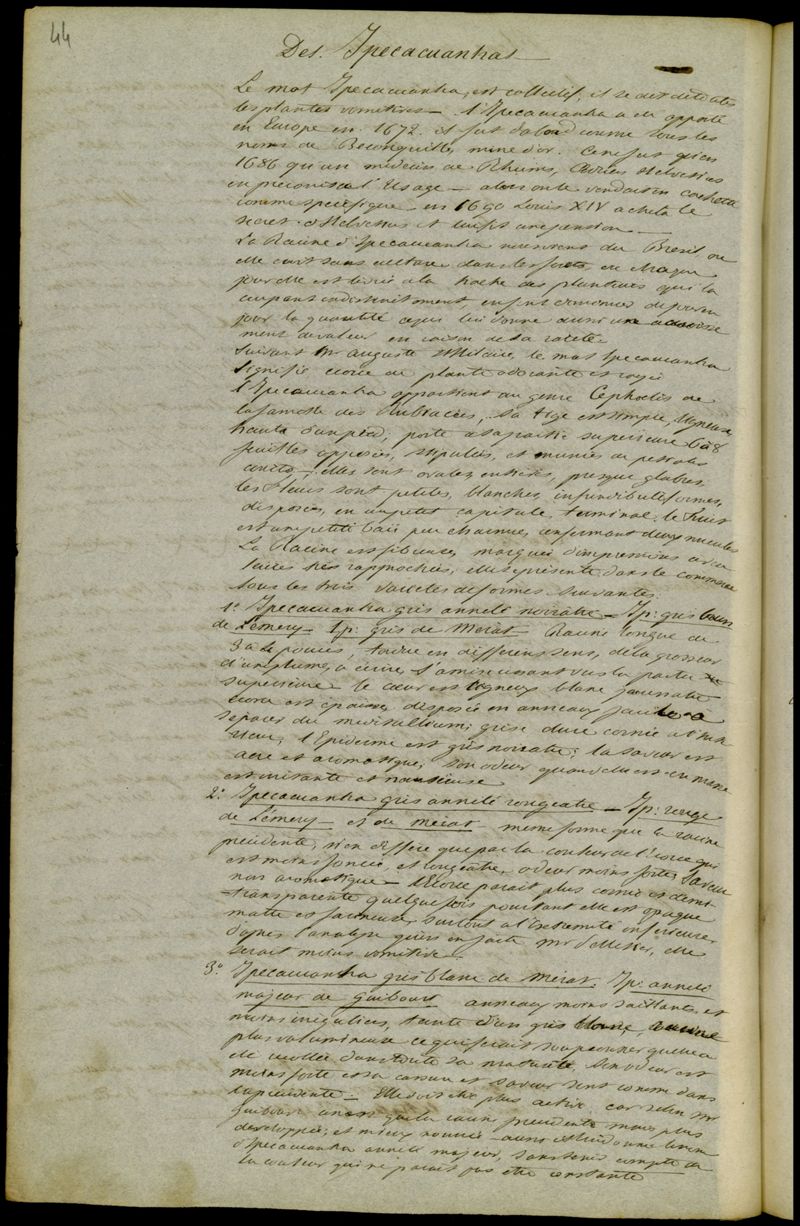 44
Des Ipecacuanhas
Le mot Ipecacuanha, est collectif, il se dit de toutes
les plantes vomitives — l'Ipecacuanha a été apporté
en Europe en 1672. il fut d'abord connu sous les
noms de Beconquille, mine d'or. Ce ne fut qu'en
1686 qu'un médecin de Rheims, Adrien Helvetius
en préconisa l'Usage — alors on le vendait en cachette
comme spécifique — en 1690 Louis XIV acheta le
secret d'Helvetius et lui fit une pension —
La Racine d'Ipecacuanha nous vient du Bresil, ou
elle croit sans culture dans les forets en chaque
jour elle est livrée a la hache des planteurs qui la
coupant indistinctement, en font diminuer de jour en
jour la quantité ce qui lui donne aussi une accroisse
ment de valeur en raison de sa rareté.
Suivant Mr Auguste St Hilaire, le mot Ipecacuanha
signifie écorce de plante odorante et rayée
l'Ipecacuanha appartient au genre Cephœlis de
la famille des Rubiacées, Sa tige est simple, ligneuse
haute d'un pied, porte a sa partie superieure 6 à 8
feuilles opposées, stipulées, et munies de petioles
courts —, elles sont ovales, entières, presque glabres,
les fleurs sont petites, blanches, infundibuliformes,
disposées, en un petit capitule terminal, le Fruit
est un petit baie peu charnue, renfermant deux nucules
La Racine est fibreuse, marquée d'impressions circu
laires très rapprochées, elle se présente dans le commerce
sous les trois variétés de formes suivantes.
1º Ipecacuanha gris annelé noirâtre — Ip: gris brun
de Lémery — Ip: gris de Mérat — Racine longue de
3 à 4 pouces, tordue en différens sens, de la grosseur
d'une plume à écrire, s'amincissant vers la partie
supérieure — le cœur est ligneux blanc jaunatre
écorce est épaisse, disposée en anneaux facile à
séparer du meditullium; grise dure cornée a l'inté
rieur, l'Epiderme est gris noiratre; la saveur est
acre et aromatique, son odeur quand elle est en masse
est irritante et nauséeuse
2º Ipecacuanha gris annelé rougeatre — Ip: rouge
de Lémery — et de Mérat — même forme que la racine
précédente, n'en différe que par la couleur de l'écorce qui
est moins foncée, et rougeatre, odeur moins forte, Saveur
non aromatique — L'Ecorce parait plus cornée et demi-
-transparente quelquefois pourtant elle est opaque
matte et farineuse surtout a l'extremité inferieure
d'après l'analyse qu'en en faite Mr Pelletier, elle
serait moins vomitive —
3º Ipecacuanha gris blanc de Mérat. Ip: annelé
majeur de Guibourt anneaux moins saillants, et
moins irréguliers, teinte d'un gris blanc, Racine
plus volumineuse ce qui ferait soupçonner qu'elle a
été recoltée dans toute sa maturité. Son odeur est
moins forte et sa cassure et saveur sont comme dans
la précédente — Elle doit etre plus active car selon Mr
Guibourt ce n'est que la racine precedente mais plus
developpée, et mieux nourrie — aussi a-t-il donné le nom
d'Ipecacuanha annelé majeur, sans tenir compte de
la couleur qui ne parait pas être constante